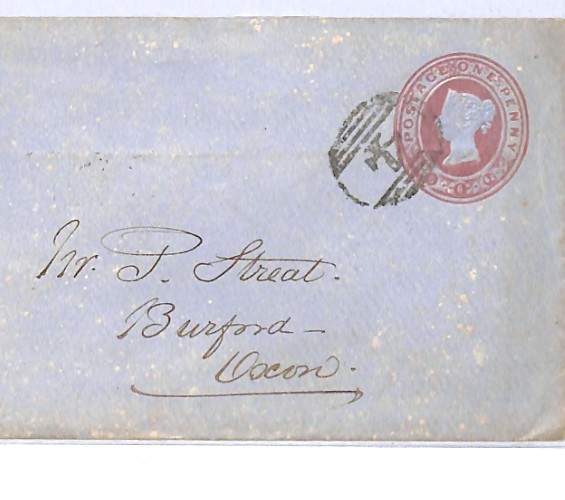 POSTAGE ONE PENNY
Mr. P. Streat.
Burford -
Oxon.